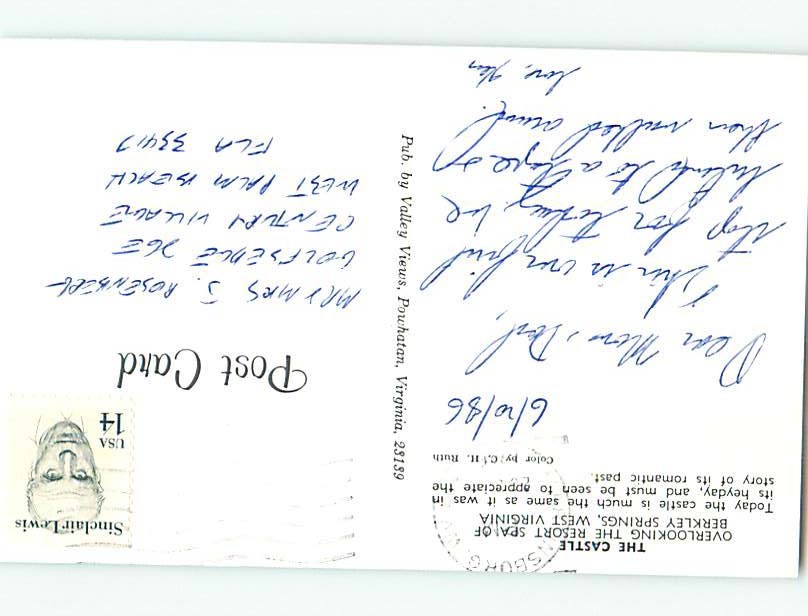 THE CASTLE
OVERLOOKING THE RESORT SPA OF
BERKLEY SPRINGS, WEST VIRGINIA
Today the castle is much the same as it was in
its heyday, and must be seen to appreciate the
story of its romantic past.
Color by: C. H. Ruth
6/10/86
Dear Mom & Dad,
This is our first
stop for today. We
listened to a tape of
then walked around.
Love, Ken
Pub. by Valley Views, Powhatan, Virginia, 23139
Sinclair Lewis
USA
14
Post Card
MR & MRS J. ROSENBERG
GOLFSEDGE 26E
CENTURY VILLAGE
WEST PALM BEACH
FLA 33417